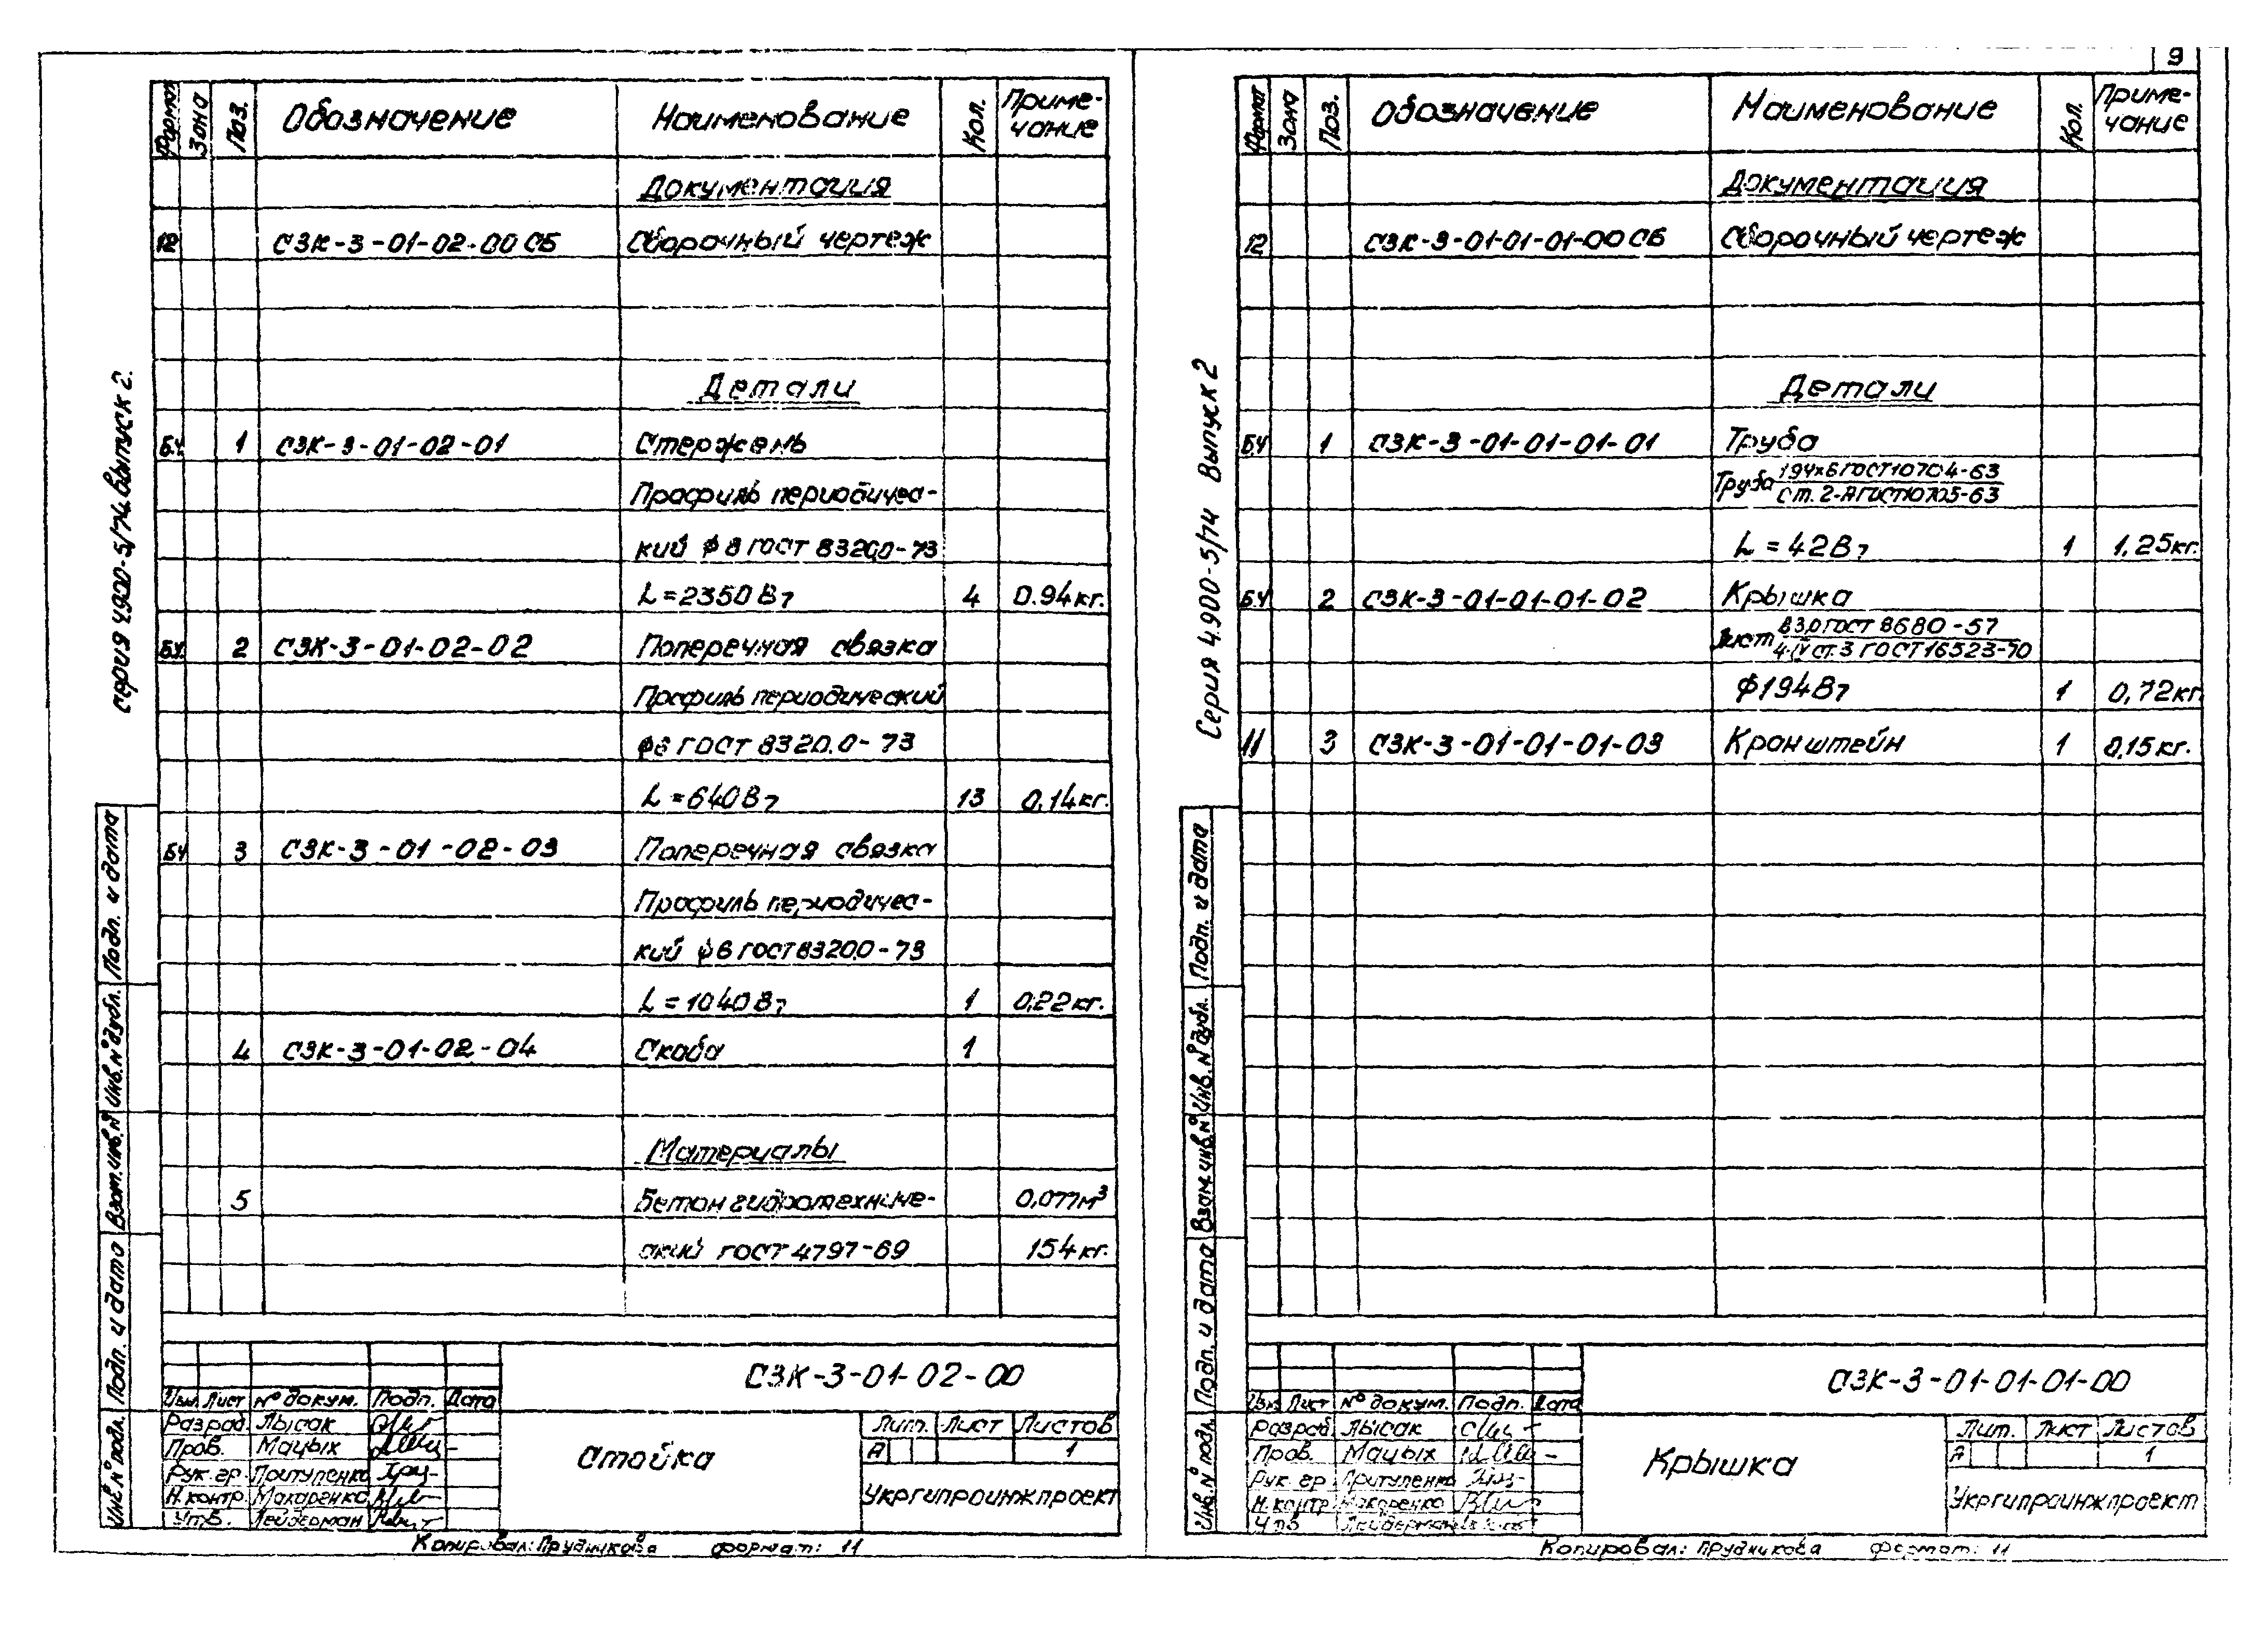 9
серия 4.900-5/74 выпуск 2.
Формат Зона Поз. Обозначение Наименование Кол. Приме-
чание
Документация
12 СЗК-3-01-02-00 СБ Сборочный чертеж
Детали
Б.Ч. 1 СЗК-3-01-02-01 Стержень
Профиль периодичес-
кий ф 8 ГОСТ 8320.0-73
L=2350 В7 4 0.94 кг.
Б.Ч. 2 СЗК-3-01-02-02 Поперечная связка
Профиль периодический
ф6 ГОСТ 8320.0-73
L=640 В7 13 0,14 кг.
БЧ 3 СЗК-3-01-02-03 Поперечная связка
Профиль периодичес-
кий ф6 ГОСТ 8320.0-73
L=1040 В7 1 0,22 кг.
4 СЗК-3-01-02-04 Скоба 1
Материалы
5 Бетон гидротехниче- 0,077м³
ский ГОСТ 4797-69 154 кг.
Инв. № подл. Подп. и дата Взам. инв. № Инв. № дубл. Подп. и дата
СЗК-3-01-02-00
Изм. Лист № докум. Подп. Дата
Разраб. Лысак
Пров. Мацых
Рук. гр. Притупенко
Н.контр. Макаренко
Утв. Лейдерман
Стойка
Лит. Лист Листов
А 1
Укргипроинжпроект
Копировал: Прудникова формат: 11
Серия 4.900-5/74 Выпуск 2
Формат Зона Поз. Обозначение Наименование Кол. Приме-
чание
Документация
12 СЗК-3-01-01-01-00 СБ Сборочный чертеж
Детали
Б.Ч 1 СЗК-3-01-01-01-01 Труба
Труба 194х6 ГОСТ 10704-63
Ст. 2-А ГОСТ 10705-63
L = 42 В7 1 1,25 кг.
Б.Ч 2 СЗК-3-01-01-01-02 Крышка
Лист В 3,0 ГОСТ 8680-57
4-IV ст.3 ГОСТ 16523-70
ф194 В7 1 0,72 кг
11 3 СЗК-3-01-01-01-03 Кронштейн 1 0,15 кг.
Инв. № подл. Подп. и дата Взам. инв. № Инв. № дубл. Подп. и дата
СЗК-3-01-01-01-00
Изм. Лист № докум. Подп. Дата
Разраб. Лысак
Пров. Мацых
Рук. гр. Притупенко
Н.контр. Макаренко
Утв. Лейдерман
Крышка
Лит. Лист Листов
А 1
Укргипроинжпроект
Копировал: Прудникова Формат: 11